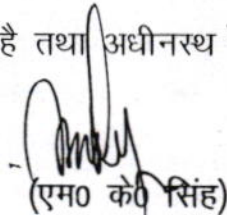 है तथा अधीनस्थ
(एम0 के0 सिंह)